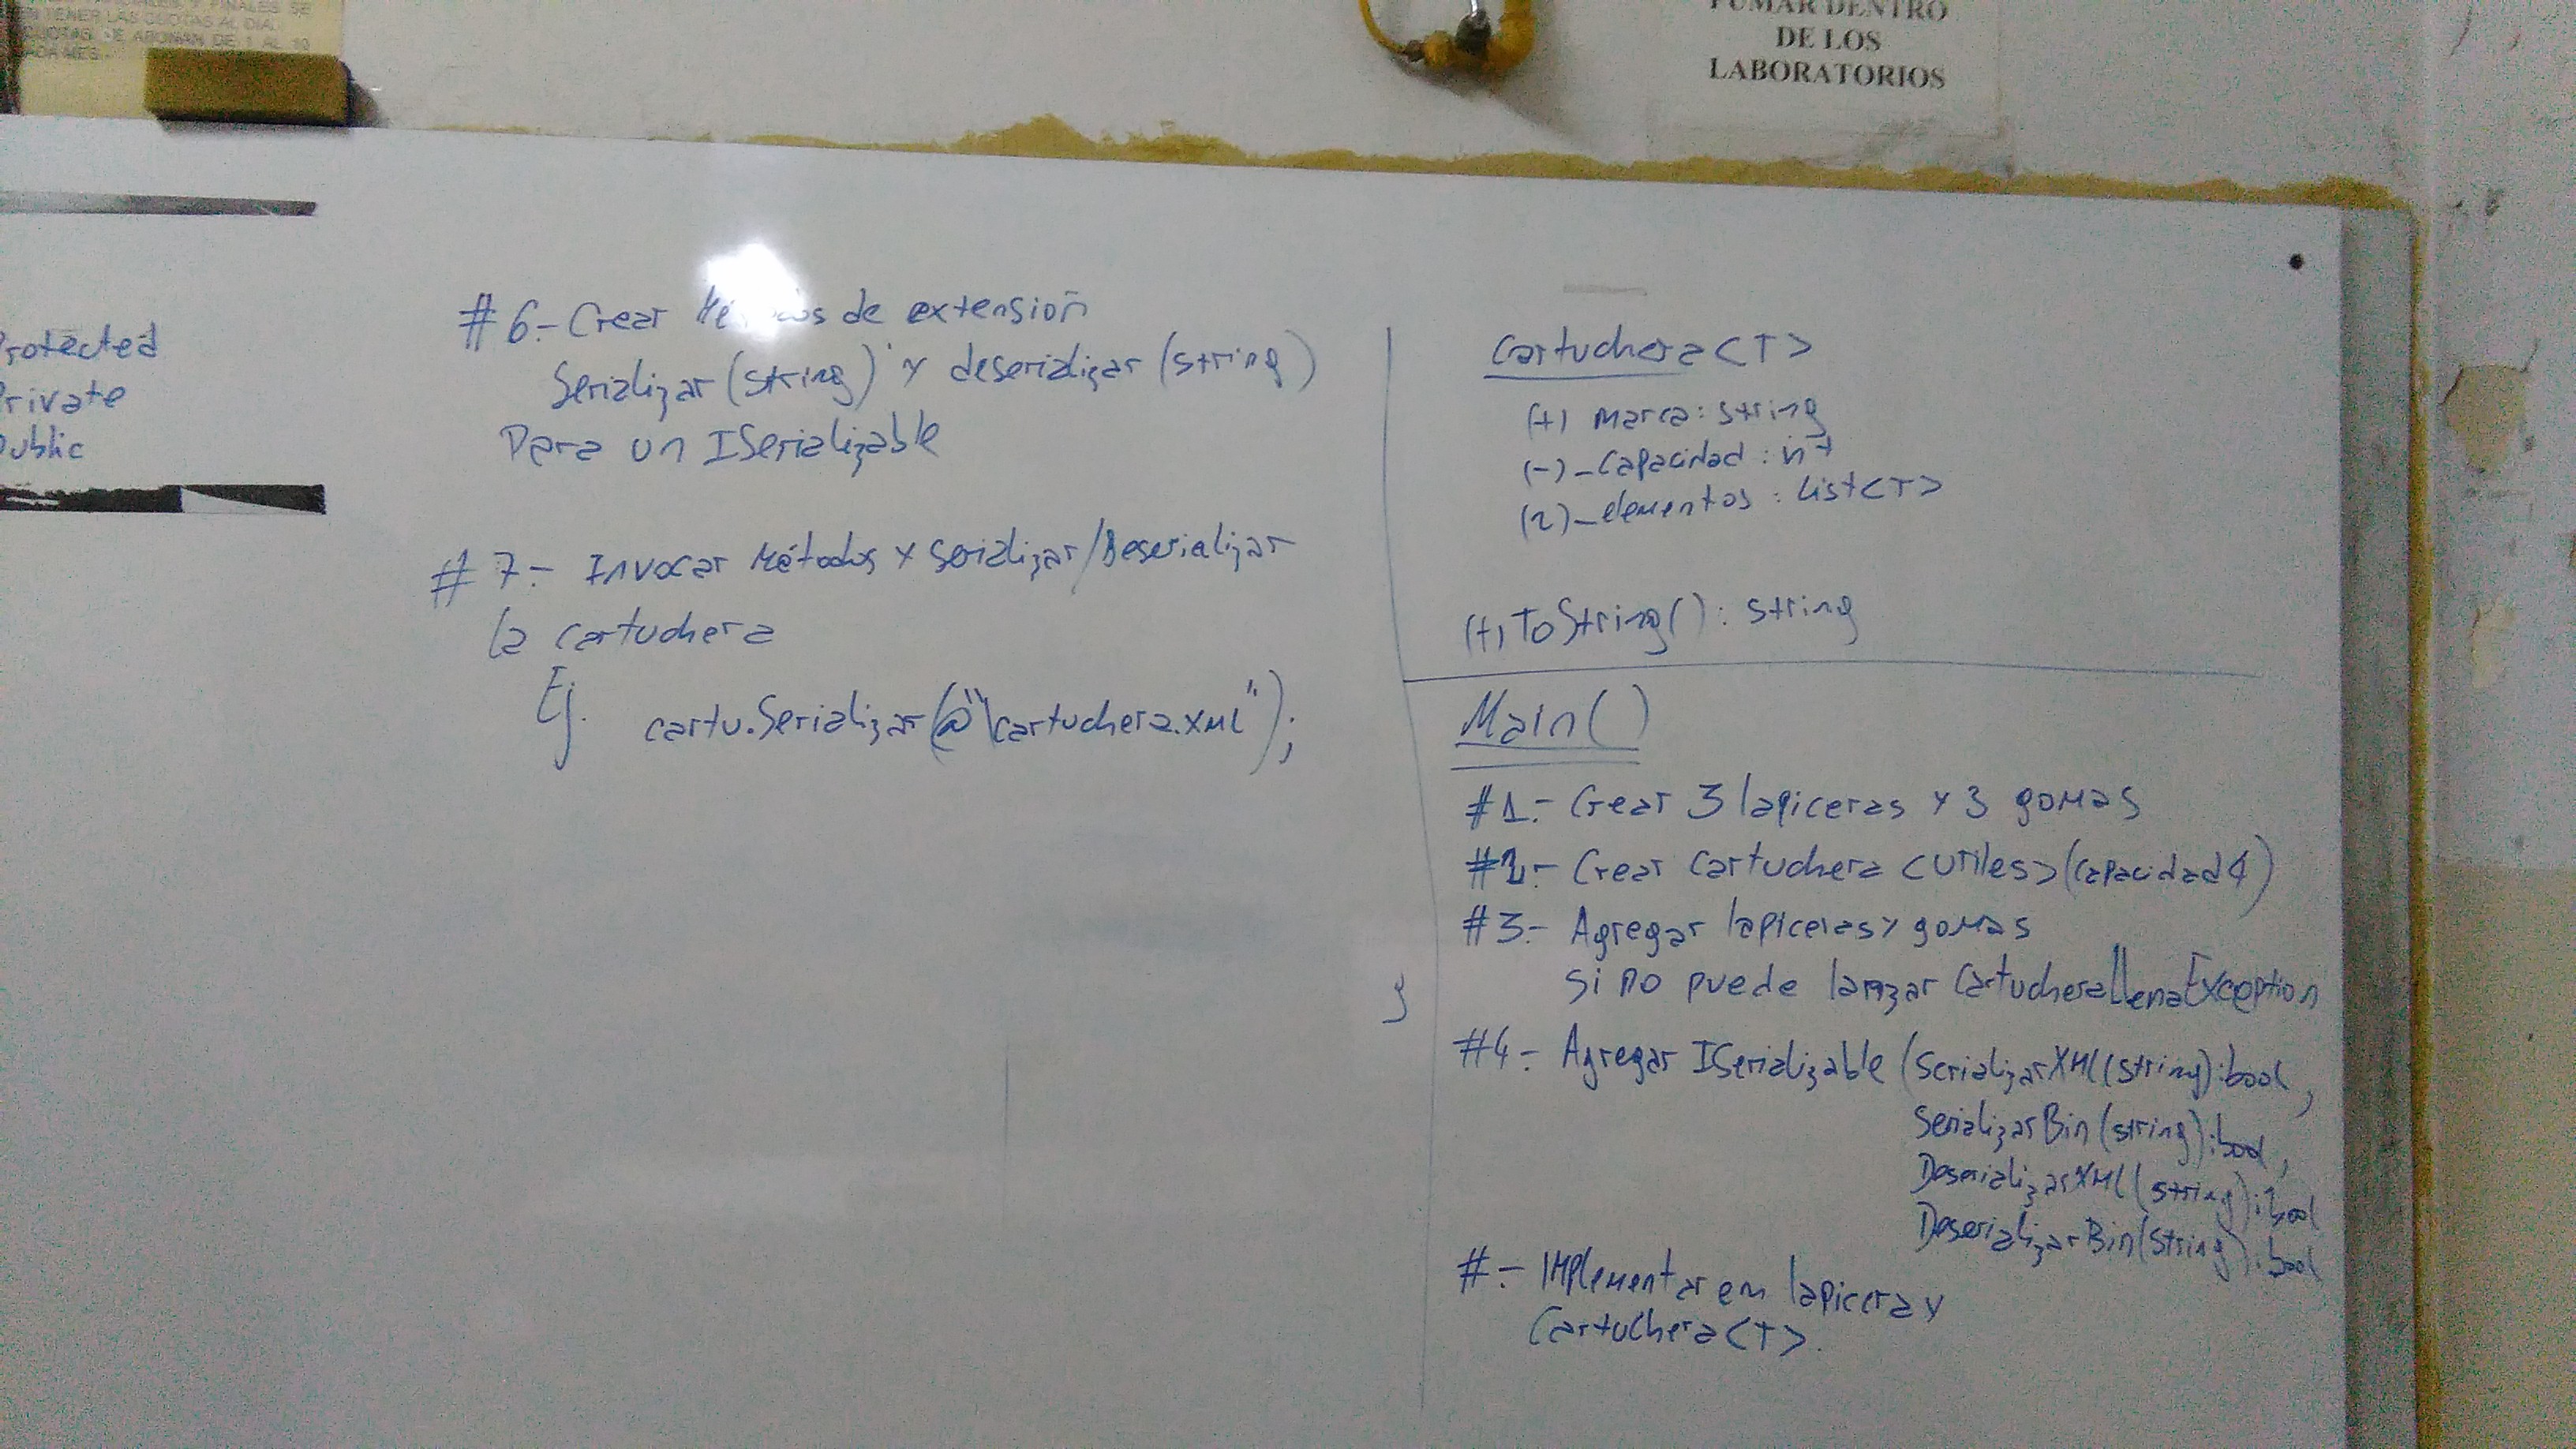 TENER LAS CUOTAS AL DIA.
CUOTAS SE ABONAN DE 1 AL 10
CADA MES
FUMAR DENTRO
DE LOS
LABORATORIOS
Protected
Private
Public
#6.- Crear Métodos de extensión
Serializar (string) y deserializar (string)
Para un ISerializable
#7.- Invocar Métodos y serializar/Deserializar
la cartuchera
Ej. cartu.Serializar(@"\cartuchera.xml");
Cartuchera<T>
(+) Marca: string
(-) _Capacidad : int
(2) _elementos : List<T>
(+) ToString() : string
Main()
#1.- Crear 3 lapiceras y 3 gomas
#2.- Crear Cartuchera <Utiles> (Capacidad 4)
#3.- Agregar lapiceras y gomas
si no puede lanzar CartucheraLlenaException
#4.- Agregar ISerializable (SerializarXML(string):bool,
SerializarBin(string):bool,
DeserializarXML(string):bool
DeserializarBin(string):bool
#.- Implementar em lapicera y
Cartuchera<T>.